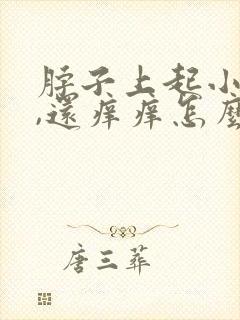 脖子上起小
,還痒痒怎麼
唐三葬